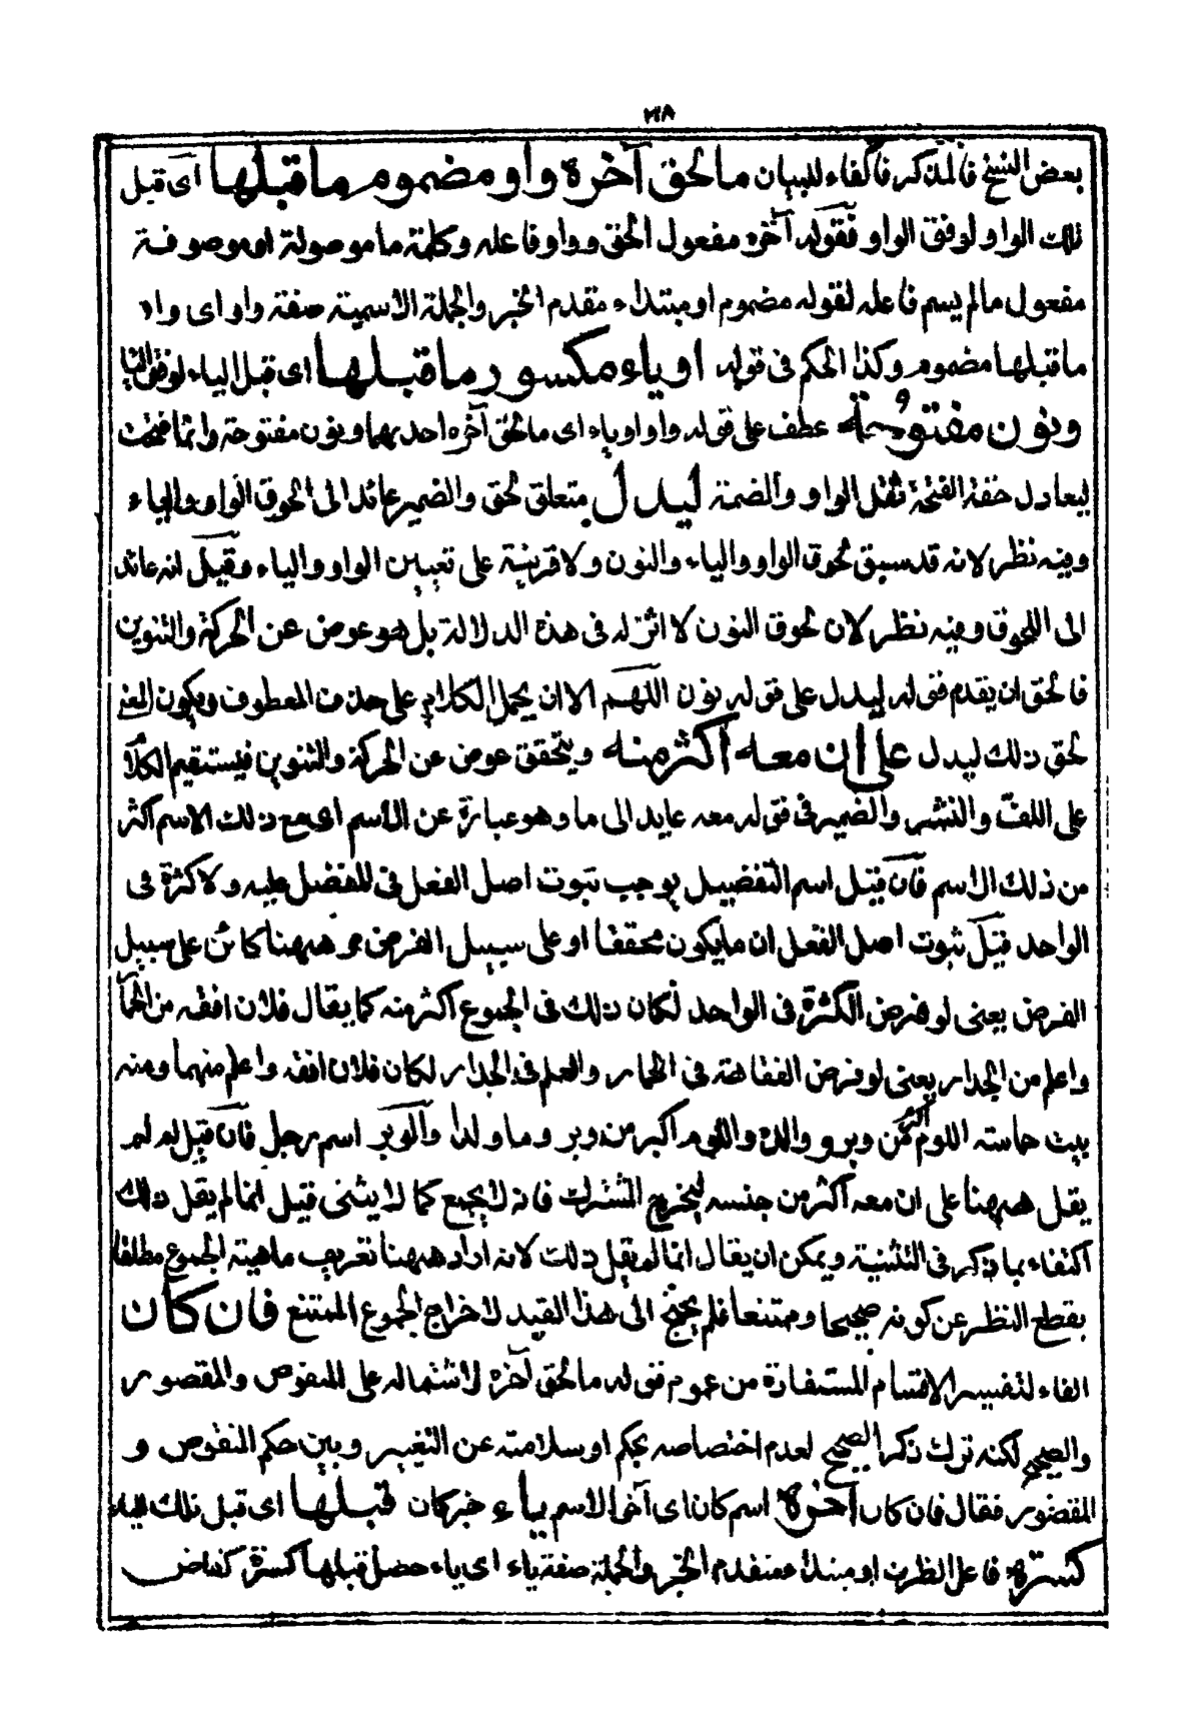 ٢١٨
بعض النسخ فالمذكر فاكفاء للبيان ما لحق آخره واو مضموم ما قبلها اى قبل
تلك الواو لوفق الواو فقوله آخره مفعول لحق وواو فاعله وكلمة ما موصولة او موصوفة
مفعول مالم يسم فاعله لقوله مضموم او مبتداء مقدم الخبر والجملة الاسمية صفة واو اى واو
ما قبلها مضموم وكذا الحكم فى قوله او ياء مكسور ما قبلها اى قبل الياء لوفق اليا
ونون مفتوحة عطف على قوله واو او ياء اى ما لحق آخره احد بهما ونون مفتوحة وانما فتحت
ليعادل خفة الفتحة ثقل الواو والضمة ليدل متعلق لحق والضمير عائد الى لحوق الواو والياء
وفيه نظر لانه قد سبق لحوق الواو والياء والنون ولا قرينة على تعيين الواو والياء وقيل انه عائد
الى اللحوق وفيه نظر لان لحوق النون لا اثر له فى هذه الدلالة بل هو عوض عن الحركة والتنوين
فالحق ان يقدم قوله ليدل على قوله نون اللهم الا ان يحمل الكلام على حذف المعطوف ويكون المعنى
لحق ذلك ليدل على ان معه اكثر منه ويتحقق عوض عن الحركة والتنوين فيستقيم الكلا
على اللف والنشر والضمير فى قوله معه عايد الى ما وهو عبارة عن الاسم اى مع ذلك الاسم اكثر
من ذلك الاسم فان قيل اسم التفضيل يوجب ثبوت اصل الفعل فى المفضل عليه ولا كثرة فى
الواحد قيل ثبوت اصل الفعل ان مايكون محققا او على سبيل الفرض هو ههنا كائن على سبيل
الفرض يعنى لو فرض الكثرة فى الواحد لكان ذلك فى الجموع اكثر منه كما يقال فلان افقه من الحما
واعلم من الجدار يعنى لو فرض الفقاهة فى الحمار والعلم فى الجدار لكان فلان افقه واعلم منهما ومنه
بيت حماسته اللوم اكرم من وبر و والده واللوم اكبر من وبر وما ولدا والوبر اسم رجل فان قيل لم لم
يقل ههنا على ان معه اكثر من جنسه ليخرج المشترك فانه لا يجمع كما لا يثنى قيل انما لم يقل ذلك
اكتفاء بما ذكر فى التثنية ويمكن ان يقال انما لم يقل ذلك لانه اراد ههنا تعريف ماهية الجموع مطلقا
بقطع النظر عن كونه صحيحا وممتنعا فلم يحتج الى هذا القيد لاخراج الجموع الممتنع فان كان
الفاء لتفسير الاقسام المستفادة من عموم قوله ما لحق آخره لاشتماله على المنقوص والمقصور
والصحيح لكنه ترك ذكر الصحيح لعدم اختصاصه بحكم او سلامته عن التغيير وبين حكم المنقوص و
المقصور فقال فان كان آخره اسم كان اى آخر الاسم ياء خبر كان قبلها اى قبل تلك الياء
كسرة فاعل الظرف او مبتداء متقدم الخبر والجملة صفة ياء اى ياء حصل قبلها كسرة كقاض